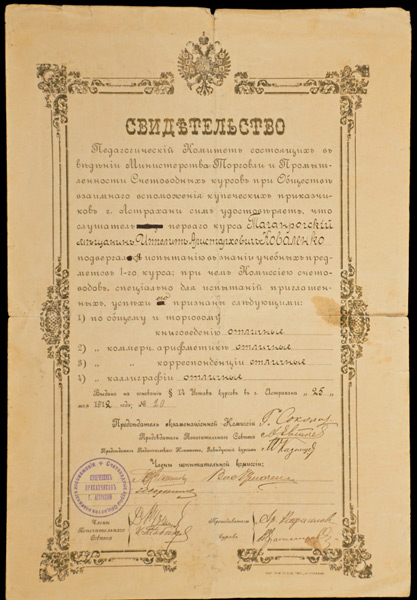 СВИДѢТЕЛЬСТВО
Педагогическій Комитетъ состоящихъ въ
вѣдѣніи Министерства Торговли и Промыш-
ленности Счетоводныхъ курсовъ при Обществѣ
взаимнаго вспоможенія купеческихъ приказчи-
ковъ г. Астрахани симъ удостовѣряетъ, что
слушатель перваго курса Таганрогскій
мѣщанинъ Ипполитъ Аристарховичъ Коваленко
подвергался испытанію въ знаніи учебныхъ пред-
метовъ 1-го курса; при чемъ Комиссіею счето-
водовъ, спеціально для испытаній приглашен-
ныхъ, успѣхи его признаны слѣдующими:
1) по общему и торговому
книговеденію отличные
2) „ коммерч. ариѳметикѣ отличные
3) „ „ корреспонденціи отличные
4) „ каллиграфіи отличные
Выдано на основаніи § 14 Устава курсовъ въ г. Астрахани „25
мая 1912 года; № 20
Предсѣдатель экзаменаціонной Комиссіи Г. Соколов
Предсѣдатель Попечительнаго Совѣта
Предсѣдатель Педагогическаго Комитета, Завѣдующій курсами
Члены испытательной комиссіи:
Члены Попечительнаго Совѣта
Преподаватели курсовъ